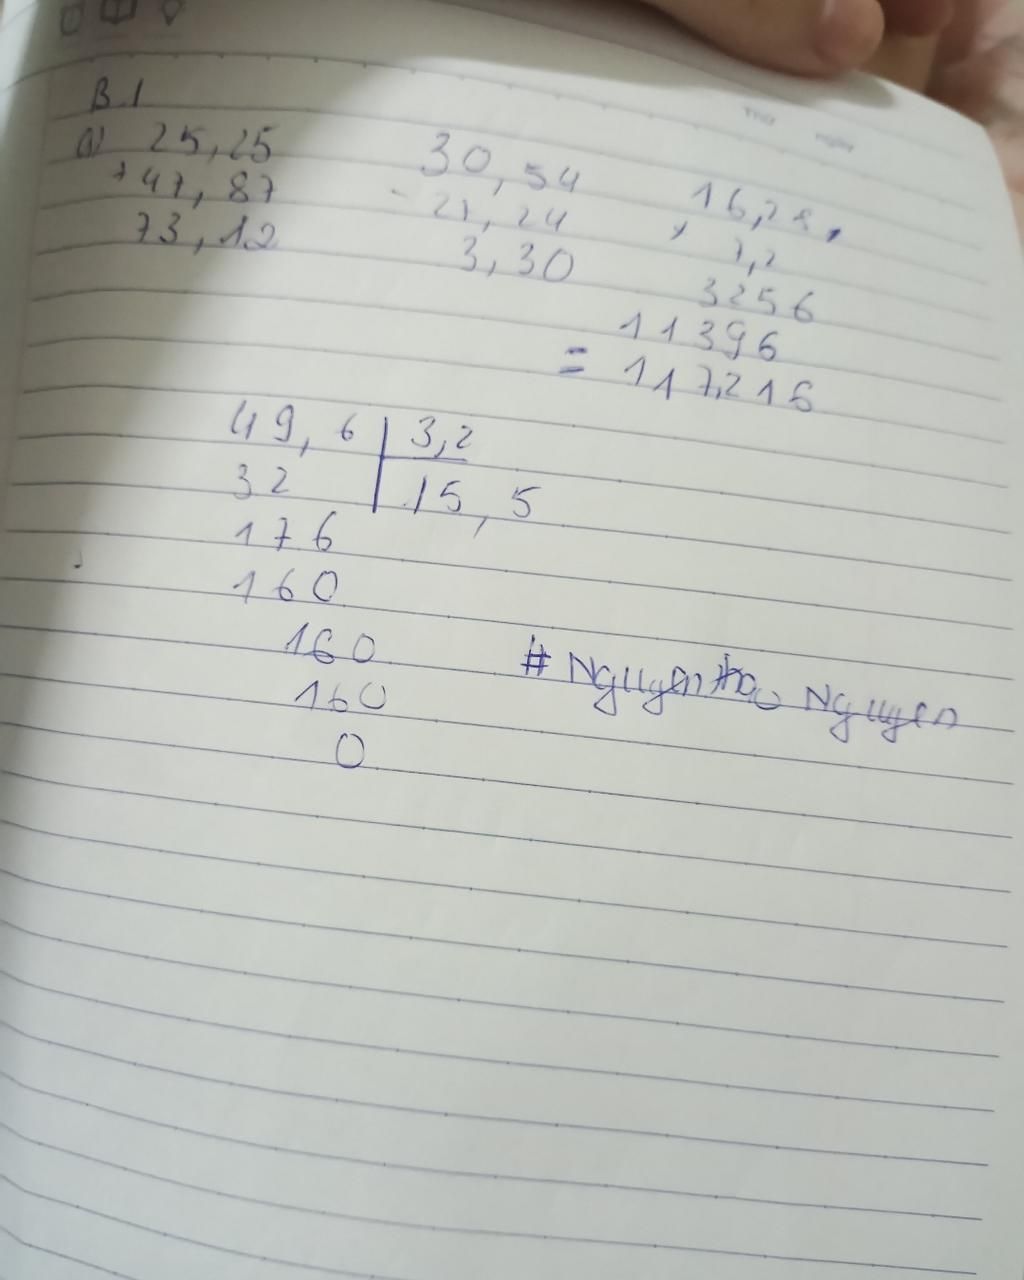 B.1
a) 25,25
+ 47,87
73,12
30,54
- 27,24
3,30
16,28
× 7,2
3256
11396
= 117,216
49,6 | 3,2
32 | 15,5
176
160
160
160
0
# Nguyen thao Nguyen